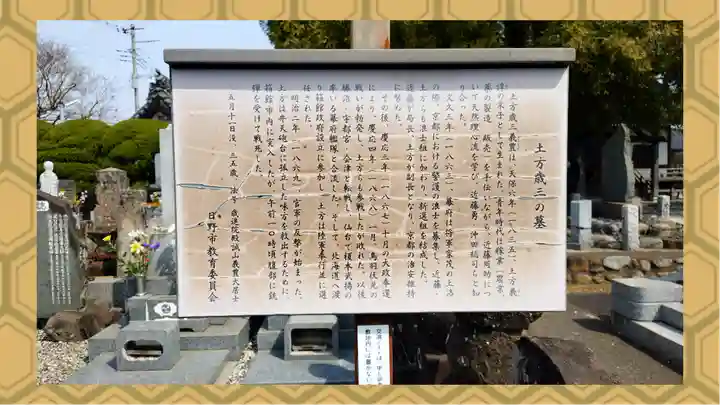 土方歳三の墓
土方歳三義豊は、天保六年(一八三五)、土方義
諄の末子として生まれた。青年時代は稼業(農家、
薬の製造、販売)を手伝いながら、近藤周助につ
いて天然理心流を学び、近藤勇、沖田総司らと知
り合った。
文久三年(一八六三)、幕府は将軍家茂の上洛
の際、京都における警護の浪士を募集し、近藤・
土方らも浪士組に加わり、新選組を結成した。
近藤が局長、土方が副長となり、京都の治安維持
に努めた。
その後、慶応三年(一八六七)十月の大政奉還
により、慶応四年(一八六八)一月、鳥羽伏見の
戦いが勃発し、土方らも参戦したが敗れた。以後
勝沼・宇都宮・会津と転戦し、仙台で榎本武揚の
率いる幕府艦隊と合流した。そして、北海道へ渡
り箱館政府設立に参加し、土方は陸軍奉行並に選
任された。
明治二年(一八六九)、官軍の反撃が始まった。
土方は弁天砲台に孤立した味方を救出するために
箱館市内に突入したが、午前一〇時頃腹部に銃
弾を受けて戦死した。
五月十一日没、三五歳、法号 歳進院殿誠山義豊大居士
日野市教育委員会